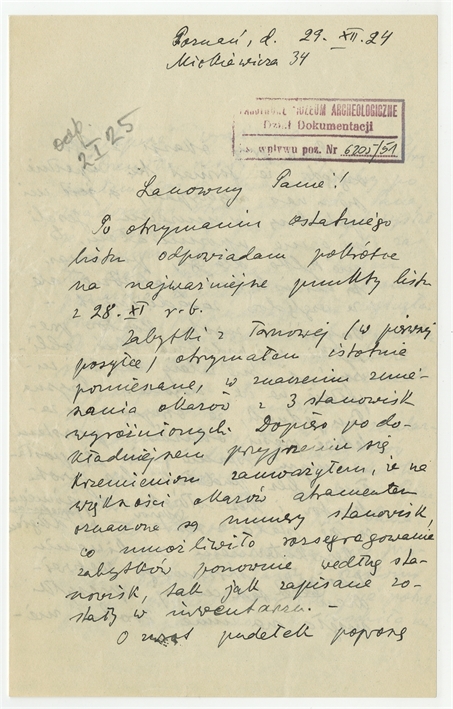 Poznań, d. 29. XII. 24
Mickiewicza 34
odp.
2 I 25
PAŃSTWOWE MUZEUM ARCHEOLOGICZNE
Dział Dokumentacji
wpływu poz. Nr 6205/51
Szanowny Panie!
Po otrzymaniu ostatniego
listu odpowiadam pokrótce
na najważniejsze punkty listu
z 28. XI r. b.
Zabytki z Tarnowej (w pierwszej
posyłce) otrzymałem istotnie
pomieszane, w znaczeniu zmie-
szania okazów z 3 stanowisk
wyróżnionych. Dopiero po do-
kładniejszem przyjrzeniu się
krzemieniom zauważyłem, że na
większości okazów atramentem
oznaczone są numery stanowisk,
co umożliwiło rozsegregowanie
zabytków ponownie według sta-
nowisk, tak jak zapisane zo-
stały w inwentarzu. –
O zwrot pudełek poproszę